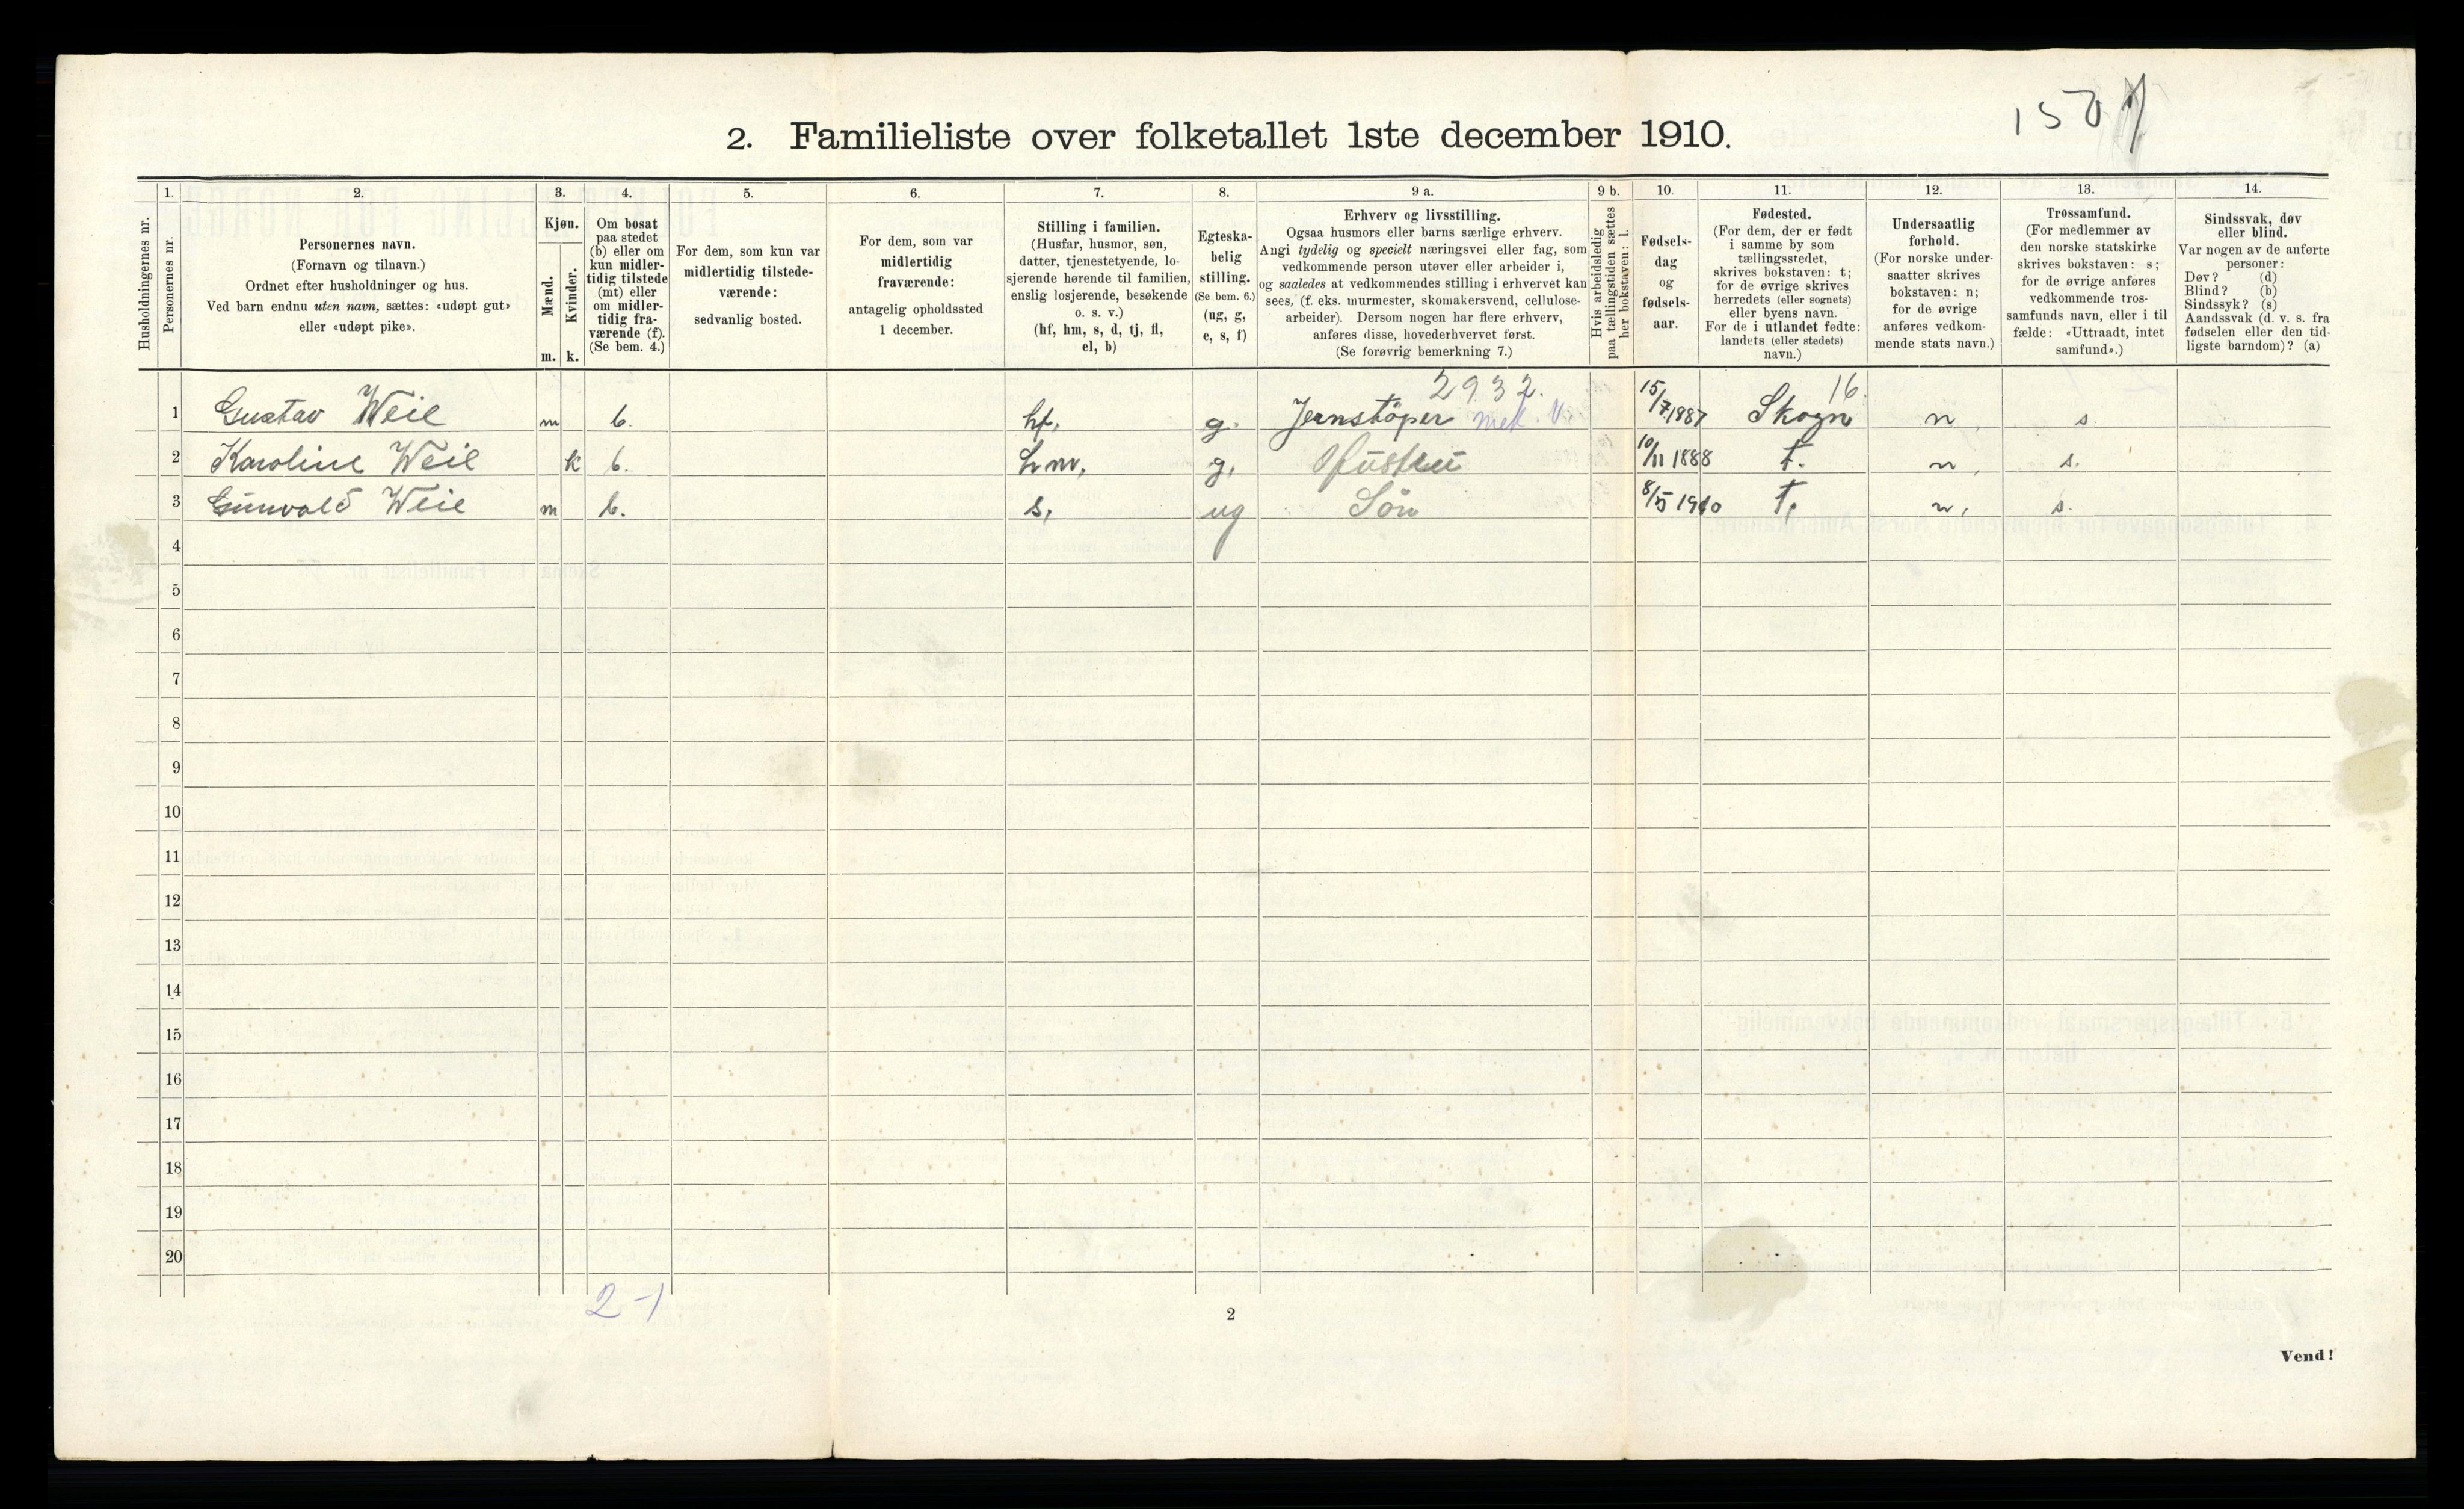 1507
2. Familieliste over folketallet 1ste december 1910.
Husholdningernes nr.
1. Personernes nr.
2. Personernes navn.
(Fornavn og tilnavn.)
Ordnet efter husholdninger og hus.
Ved barn endnu uten navn, sættes: «udøpt gut»
eller «udøpt pike».
3. Kjøn.
Mænd. m.
Kvinder. k.
4. Om bosat
paa stedet
(b) eller om
kun midler-
tidig tilstede
(mt) eller
om midler-
tidig fra-
værende (f).
(Se bem. 4.)
5. For dem, som kun var
midlertidig tilstede-
værende:
sedvanlig bosted.
6. For dem, som var
midlertidig
fraværende:
antagelig opholdssted
1 december.
7. Stilling i familien.
(Husfar, husmor, søn,
datter, tjenestetyende, lo-
sjerende hørende til familien,
enslig losjerende, besøkende
o. s. v.)
(hf, hm, s, d, tj, fl,
el, b)
8. Egteska-
belig
stilling.
(Se bem. 6.)
(ug, g,
e, s, f)
9 a. Erhverv og livsstilling.
Ogsaa husmors eller barns særlige erhverv.
Angi tydelig og specielt næringsvei eller fag, som
vedkommende person utøver eller arbeider i,
og saaledes at vedkommendes stilling i erhvervet kan
sees, (f. eks. murmester, skomakersvend, cellulose-
arbeider). Dersom nogen har flere erhverv,
anføres disse, hovederhvervet først.
(Se forøvrig bemerkning 7.)
9 b. Hvis arbeidsledig
paa tællingstiden sættes
her bokstaven: l.
10. Fødsels-
dag
og
fødsels-
aar.
11. Fødested.
(For dem, der er født
i samme by som
tællingsstedet,
skrives bokstaven: t;
for de øvrige skrives
herredets (eller sognets)
eller byens navn.
For de i utlandet fødte:
landets (eller stedets)
navn.)
12. Undersaatlig
forhold.
(For norske under-
saatter skrives
bokstaven: n;
for de øvrige
anføres vedkom-
mende stats navn.)
13. Trossamfund.
(For medlemmer av
den norske statskirke
skrives bokstaven: s;
for de øvrige anføres
vedkommende tros-
samfunds navn, eller i til
fælde: «Uttraadt, intet
samfund».)
14. Sindssvak, døv
eller blind.
Var nogen av de anførte
personer:
Døv? (d)
Blind? (b)
Sindssyk? (s)
Aandssvak (d. v. s. fra
fødselen eller den tid-
ligste barndom)? (a)
2932. 16.
1 Gustav Weie m b. hf. g. Jernstøper mek. V. 15/7 1887 Skogn n. s.
2 Karoline Weie k b. hm. g. Hustru 10/11 1888 t. n. s.
3 Gunvald Weie m b. s. ug Søn 8/5 1910 t. n. s.
4
5
6
7
8
9
10
11
12
13
14
15
16
17
18
19
20
2-1
2
Vend!